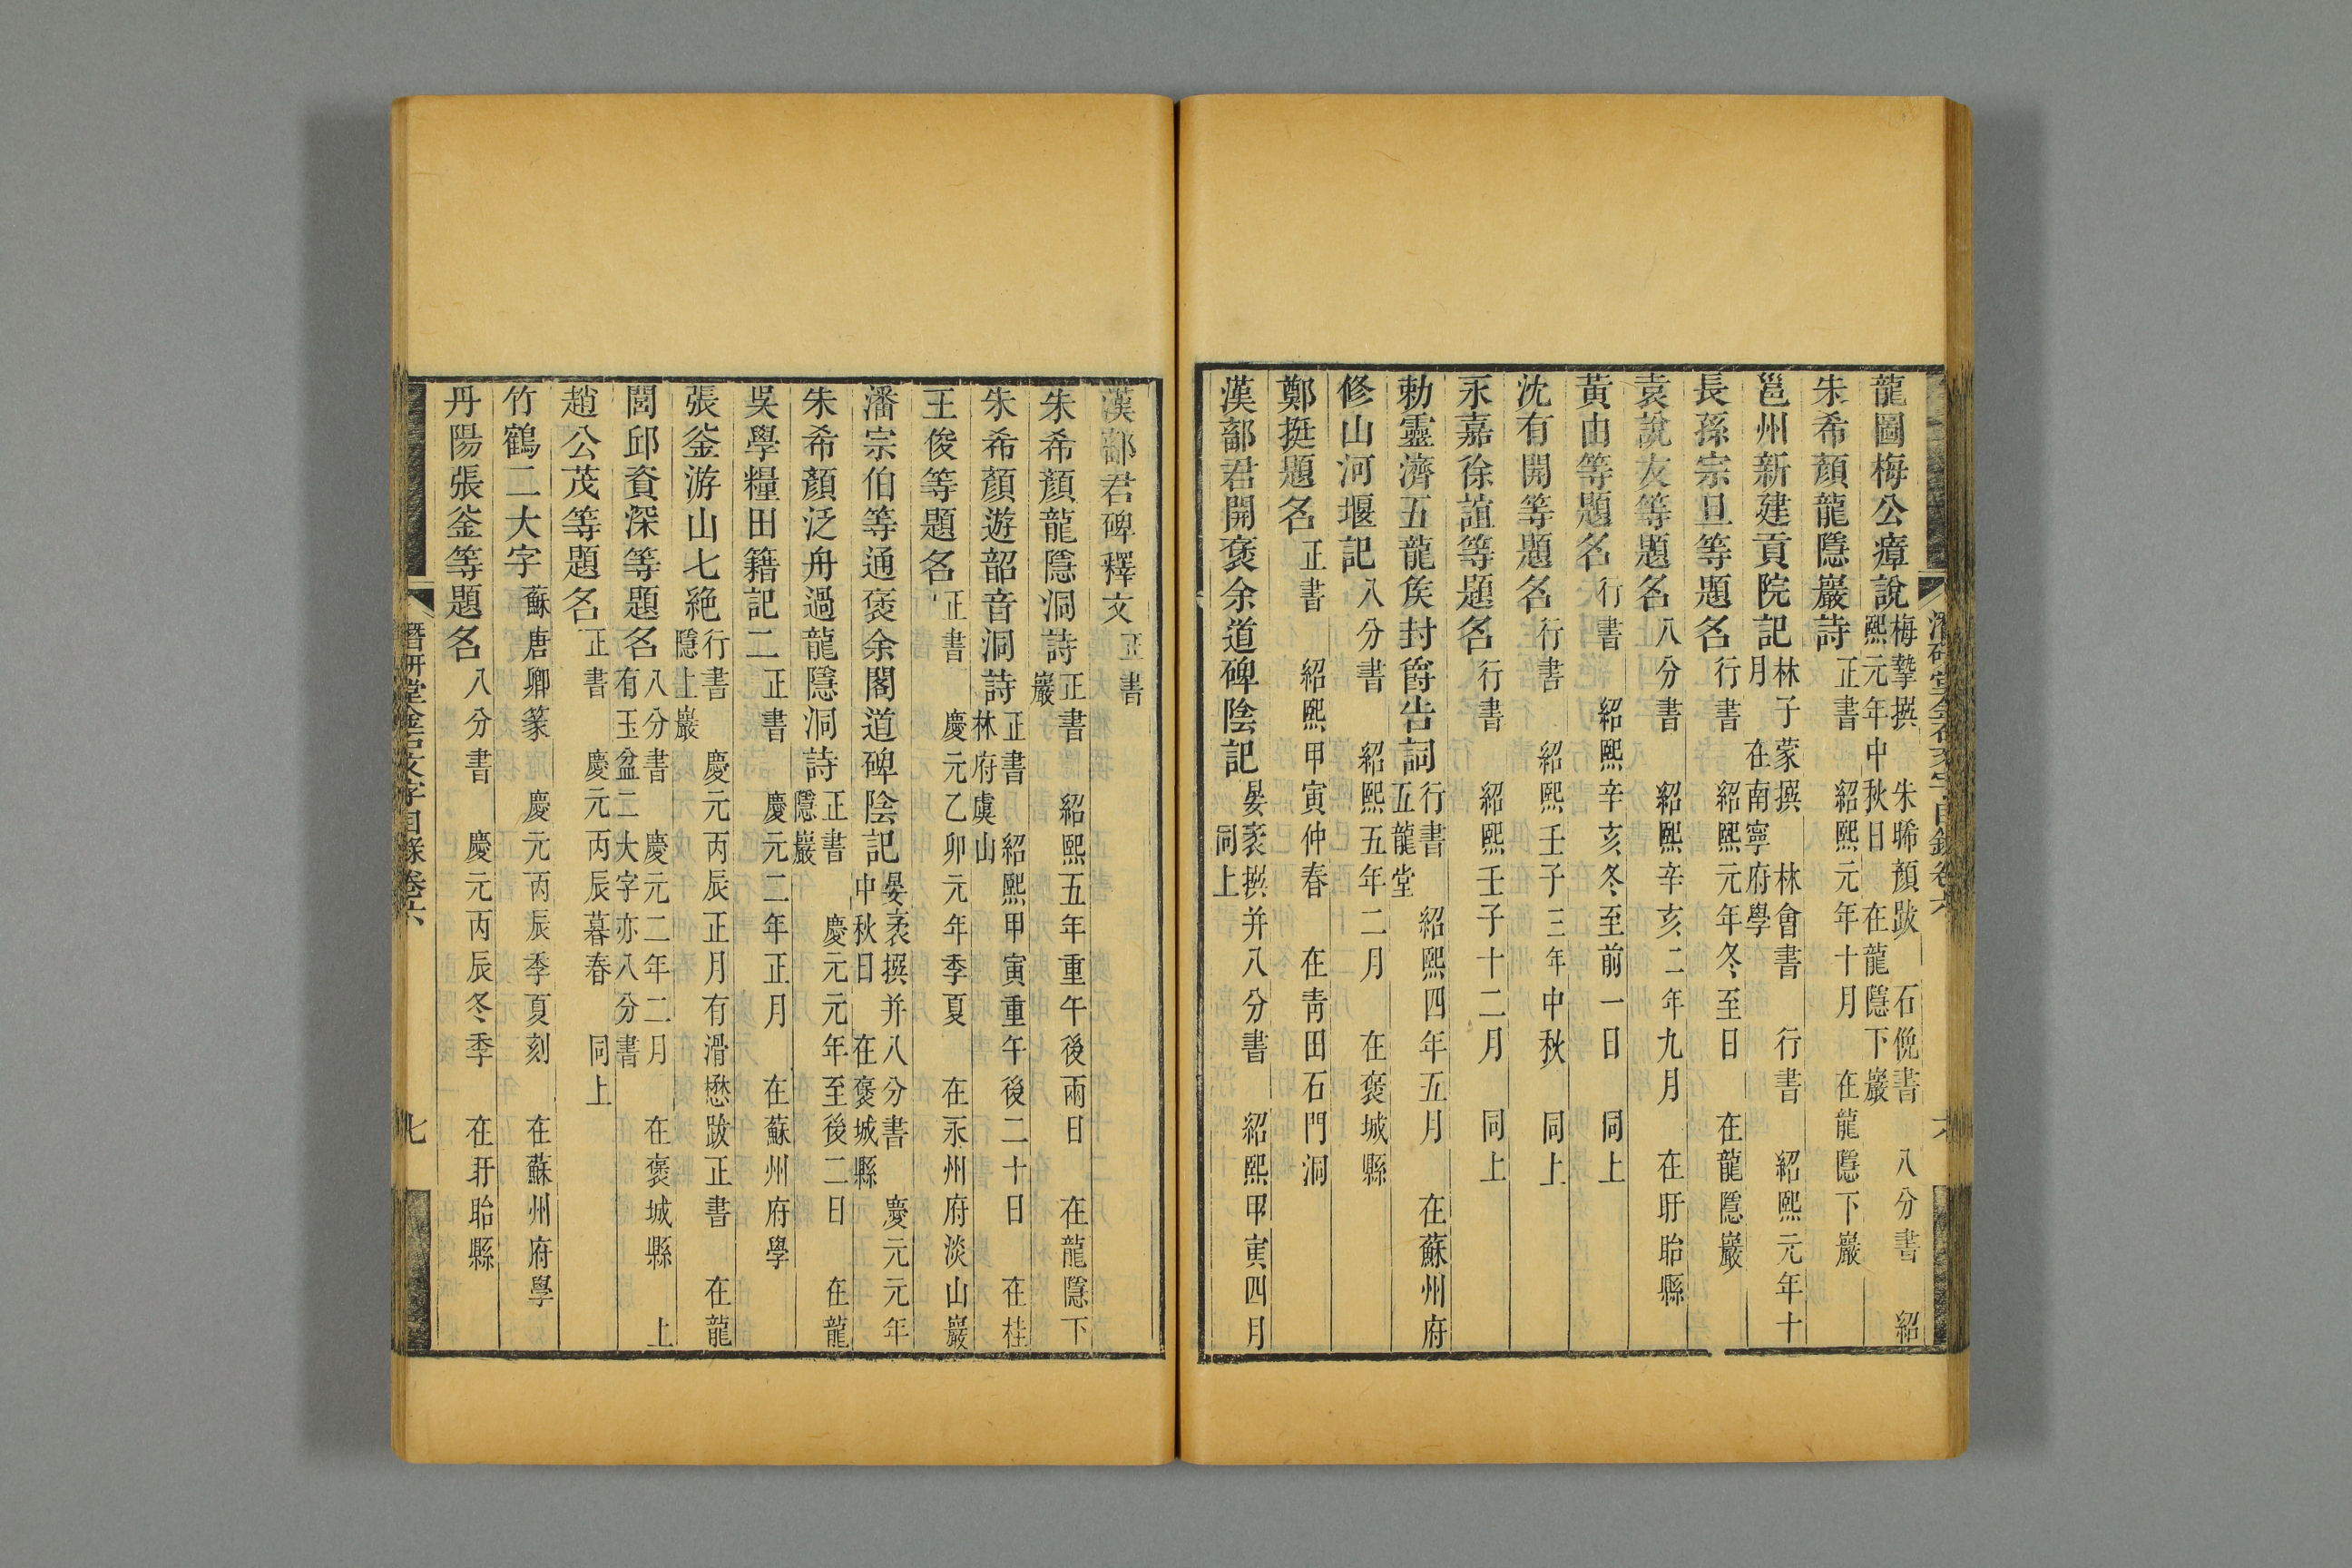 龍圖梅公瘴說 梅摯撰 朱晞顏跋 石俛書 八分書 紹
熙元年中秋日 在龍隱下巖
朱希顏龍隱巖詩 正書 紹熙元年十月 在龍隱下巖
邕州新建貢院記 林子蒙撰 林會書 行書 紹熙元年十
月 在南寧府學
長孫宗旦等題名 行書 紹熙元年冬至日 在龍隱巖
袁說友等題名 八分書 紹熙辛亥二年九月 在盱眙縣
黃由等題名 行書 紹熙辛亥冬至前一日 同上
沈有開等題名 行書 紹熙壬子三年中秋 同上
永嘉徐誼等題名 行書 紹熙壬子十二月 同上
勅靈濟五龍矦封爵告詞 行書 紹熙四年五月 在蘇州府
五龍堂
修山河堰記 八分書 紹熙五年二月 在褒城縣
鄭挺題名 正書 紹熙甲寅仲春 在靑田石門洞
漢鄐君開褒余道碑陰記 晏袤撰并八分書 紹熙甲寅四月
同上
潛研堂金石文字目錄卷六 六
漢鄐君碑釋文 正書
朱希顏龍隱洞詩 正書 紹熙五年重午後兩日 在龍隱下
巖
朱希顏遊韶音洞詩 正書 紹熙甲寅重午後二十日 在桂
林府虞山
王俊等題名 正書 慶元乙卯元年季夏 在永州府淡山巖
潘宗伯等通褒余閣道碑陰記 晏袤撰并八分書 慶元元年
中秋日 在褒城縣
朱希顏泛舟過龍隱洞詩 正書 慶元元年至後二日 在龍
隱巖
吳學糧田籍記二 正書 慶元二年正月 在蘇州府學
張釜游山七絕 行書 慶元丙辰正月有滑懋跋正書 在龍
隱上巖
閭邱資深等題名 八分書 慶元二年二月 在褒城縣 上
有玉盆二大字亦八分書
趙公茂等題名 正書 慶元丙辰暮春 同上
竹鶴二大字 蘇唐卿篆 慶元丙辰季夏刻 在蘇州府學
丹陽張釜等題名 八分書 慶元丙辰冬季 在盱眙縣
潛研堂金石文字目錄卷六 七